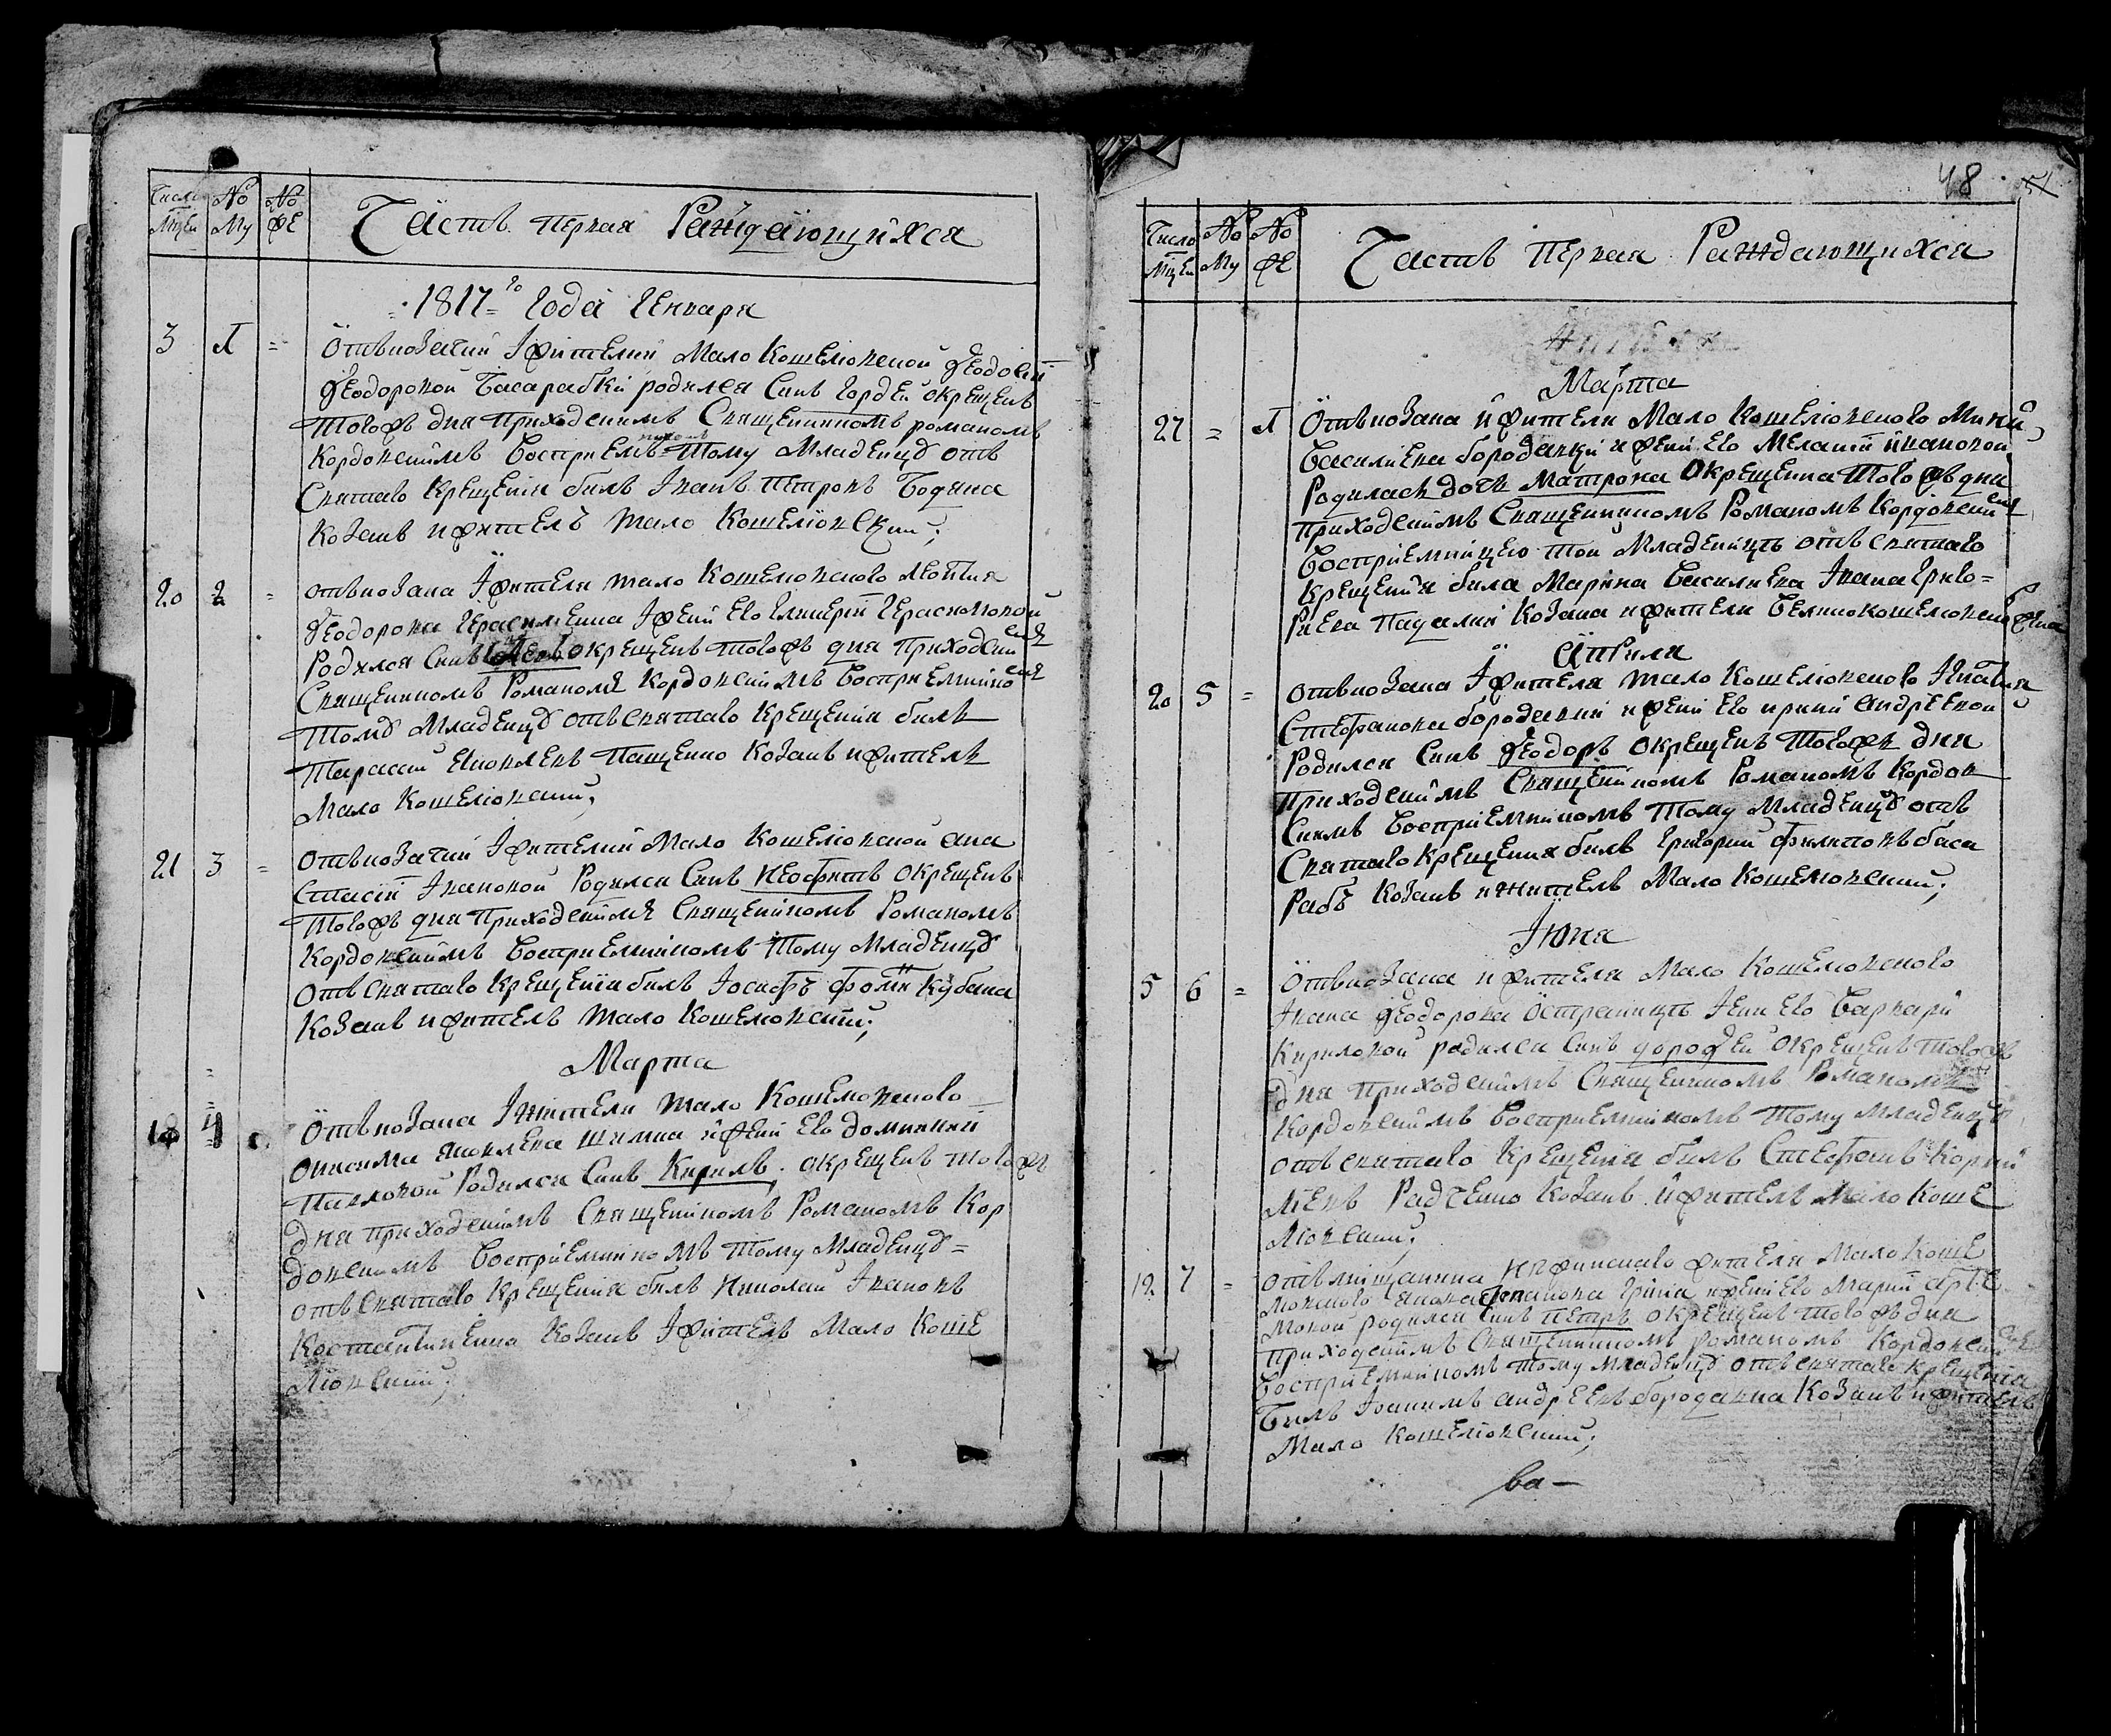 Число Мцєи
No Му
No ЖЕ
Часть первая Раждающихся
1817 го года Генваря
3 1 =
Отъ козачки Жителки Мало Кошелювской Феодосіи
Феодоровой Басарабки родился Синъ Гордей окрещенъ
Тогожъ дня Приходскимъ Священникомъ романомъ
Кордовскимъ Восприемникомъ Тому Младенцу отъ
Святаго Крещенія билъ Іванъ Петровъ Бодяка
Козакъ и житель Мало Кошелювский;
20 2 =
отъ козака Жителя Мало Кошелювского
Феодорова Герасименка Жени Его Герасимовой
Родился Синъ окрещенъ тогожъ дня Приходским
Священникомъ Романомъ Кордовскимъ Восприемником
Тому Младенцу отъ Святаго Крещенія билъ
Тарасий Яковлевъ Пащенко Козакъ и житель
Мало Кошелювский;
21 3 =
отъ козачки Жителки Мало Кошелювской Ана
стасіи Івановой Родился Синъ Неофитъ окрещенъ
Тогожъ дня Приходскимъ Священникомъ Романомъ
Кордовскимъ Восприемникомъ Тому Младенцу
Отъ Святаго Крещенія билъ Іосифъ Фомин Кубака
Козакъ и житель Мало Кошелювский;
Марта
4
Отъ козака Жителя Мало Кошелювского
Онисима Яковлева Шимка и жени Его Домникии
Павловой Родился Синъ Кирилъ. окрещенъ тогожъ
дня приходскимъ Священникомъ Романомъ Кор
довскимъ Восприемникомъ тому Младенцу =
отъ Святаго Крещенія билъ Николай Івановъ
Костантиненко Козакъ Житель Мало Коше
лювский;
48 51
Число Мцєи
No Му
No ЖЕ
Часть Первая Раждающихся
Марта
27 = 1
Отъ козака и жителя Мало Кошелювского
Василиева бородавки и жени Его Меланіи ивановой
Родилась дочь Матрона Окрещенна Тогожъ дня
Приходскимъ Священникомъ Романомъ Кордовским
Восприемницею той Младеницѣ отъ Святаго
Крещенія била Марина Василиева Івана Григо=
риева Падалки Козака и жителя Великокошелювского жена
Априля
20 5 =
отъ козака Жителя Мало Кошелювского Игнатия
Стефанова бородавки и жени Его ирини андреевой
Родился Синъ Феодоръ окрещенъ Тогожъ дня
Приходскимъ Священникомъ Романомъ Кордов
скимъ Восприемникомъ Тому Младенцу отъ
Святаго Крещения билъ Григорий Филиповъ баса
рабъ Козакъ и житель Мало Кошелювский;
Июня
5 6 =
Отъ козака и жителя Мало Кошелювского
Івана Феодорова Жени Его Варвари
Кириловой родился Синъ дорофей окрещенъ тогожъ
дня приходскимъ Священникомъ Романомъ
Кордовскимъ Восприемникомъ тому младенцу
отъ святаго Крещения билъ Стефанъ Корни
лиевъ Радченко Козакъ и житель Мало Коше
лювский;
12 7 =
отъ мищанина Нѣжинскаго жителя Мало Коше
лювского Якова и жени Его Марии арте
мовой родился Синъ Петръ окрещенъ тогожъ дня
Приходскимъ Священникомъ романомъ Кордовским
Восприемникомъ тому младенцу отъ святаго крещения
Билъ Іоакимъ андреевъ бородавка Козакъ и житель
Мало Кошелювский;